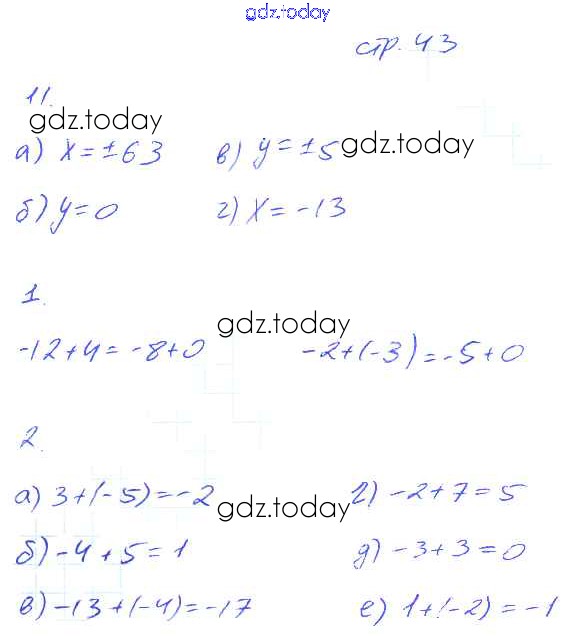 gdz.today
стр. 43
11.
gdz.today
а) x = ±63 в) y = ±5 gdz.today
б) y = 0 г) x = -13
1.
gdz.today
-12+4 = -8+0 -2+(-3) = -5+0
2.
а) 3+(-5) = -2 gdz.today г) -2+7 = 5
б) -4+5 = 1 д) -3+3 = 0
в) -13+(-4) = -17 е) 1+(-2) = -1